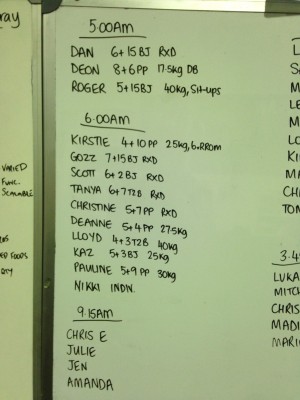 ray
VARIED
FUNC.
SCALABLE
5:00AM
DAN 6+15BJ RXD
DEON 8+6PP 17.5kg DB
ROGER 5+15BJ 40kg, Sit-ups
6:00AM
KIRSTIE 4+10PP 25kg, 6.RROM
GOZZ 7+15BJ RXD
SCOTT 6+2BJ RXD
TANYA 6+7T2B RXD
CHRISTINE 5+7PP RXD
DEANNE 5+4PP 27.5kg
LLOYD 4+3T2B 40kg
KAZ 5+3BJ 25kg
PAULINE 5+9PP 30kg
NIKKI INDN.
9:15AM
CHRIS E
JULIE
JEN
AMANDA
3.4
LUKA
MITCH
CHRIS
MADI
MARI